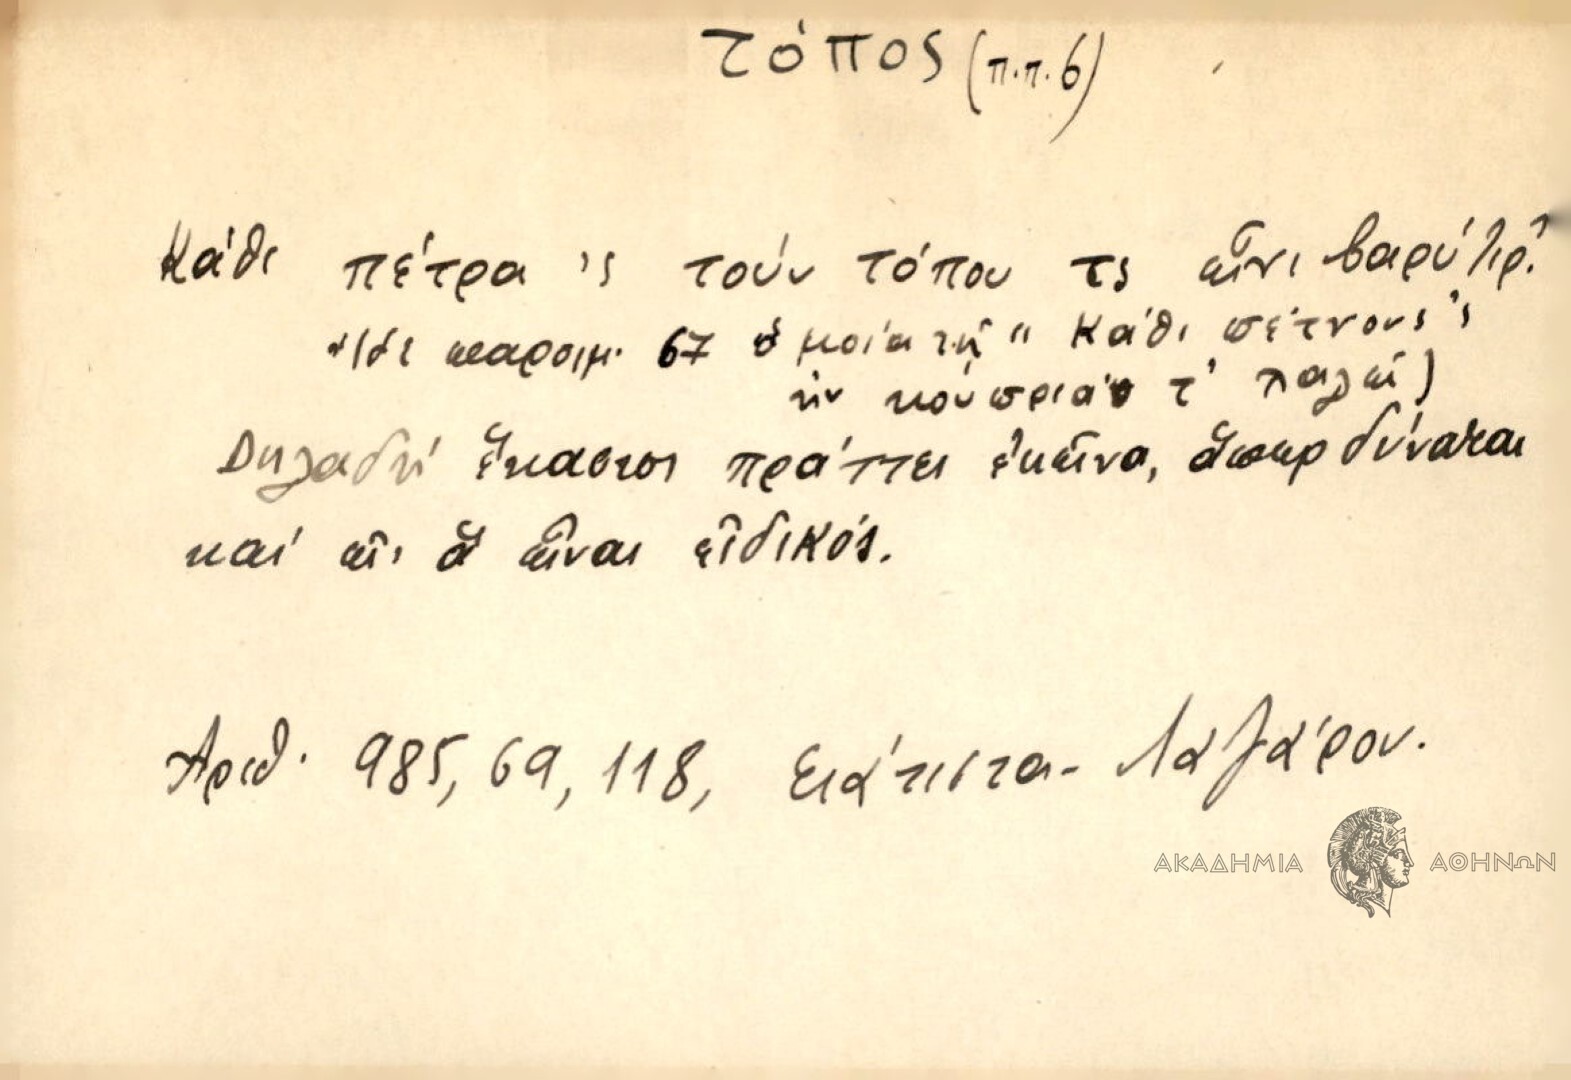 τόπος (π.π. 6)
Κάθι πέτρα 'ς τούν τόπου τς εἶνι βαρύτιρ'
Ἰδὲ παροιμ. 67 ὁμοία τῇ "Κάθι πέτνους 'ς
τὴν κουπριά τ' λαλεῖ)
Δηλαδή ἕκαστος πράττει ἐκεῖνα, ἅπερ δύναται
καί εἰς ἅ εἶναι εἰδικός.
Ἀριθ. 985, 69, 118, Σιάτιστα - Λαζάρου.
ΑΚΑΔΗΜΙΑ ΑΘΗΝΩΝ